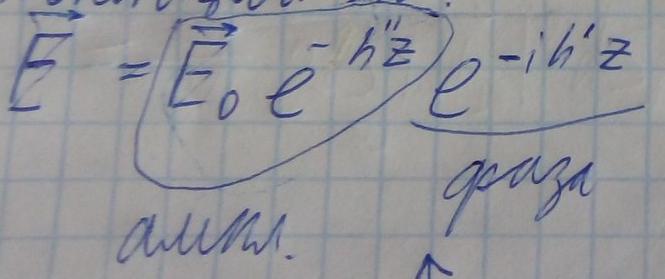 E⃗ = E⃗₀ e^{-h''z} e^{-ih'z}
фаза
ампл.